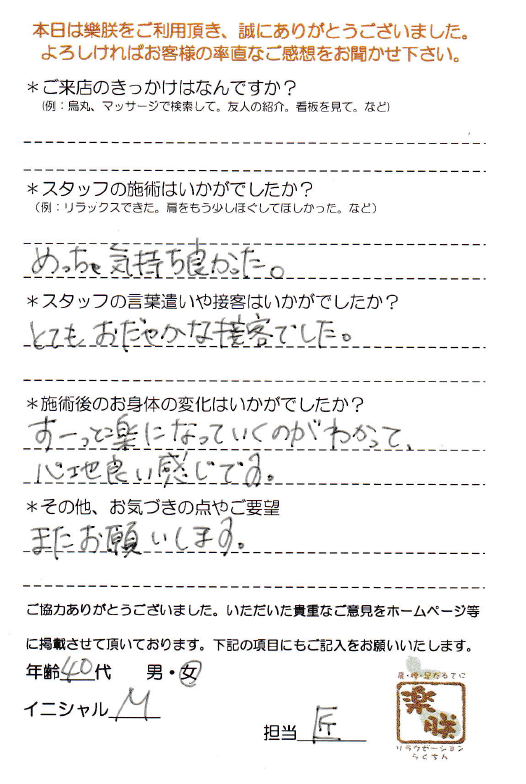 本日は樂朕をご利用頂き、誠にありがとうございました。
よろしければお客様の率直なご感想をお聞かせ下さい。
＊ご来店のきっかけはなんですか？
（例：烏丸、マッサージで検索して。友人の紹介。看板を見て。など）
＊スタッフの施術はいかがでしたか？
（例：リラックスできた。肩をもう少しほぐしてほしかった。など）
めっちゃ気持ち良かった。
＊スタッフの言葉遣いや接客はいかがでしたか？
とてもおだやかな接客でした。
＊施術後のお身体の変化はいかがでしたか？
すーっと楽になっていくのがわかって、
心地良い感じです。
＊その他、お気づきの点やご要望
またお願いします。
ご協力ありがとうございました。いただいた貴重なご意見をホームページ等
に掲載させて頂いております。下記の項目にもご記入をお願いいたします。
年齢 40 代 男・女
イニシャル M
担当 匠
楽朕
リラクゼーション
らくちん